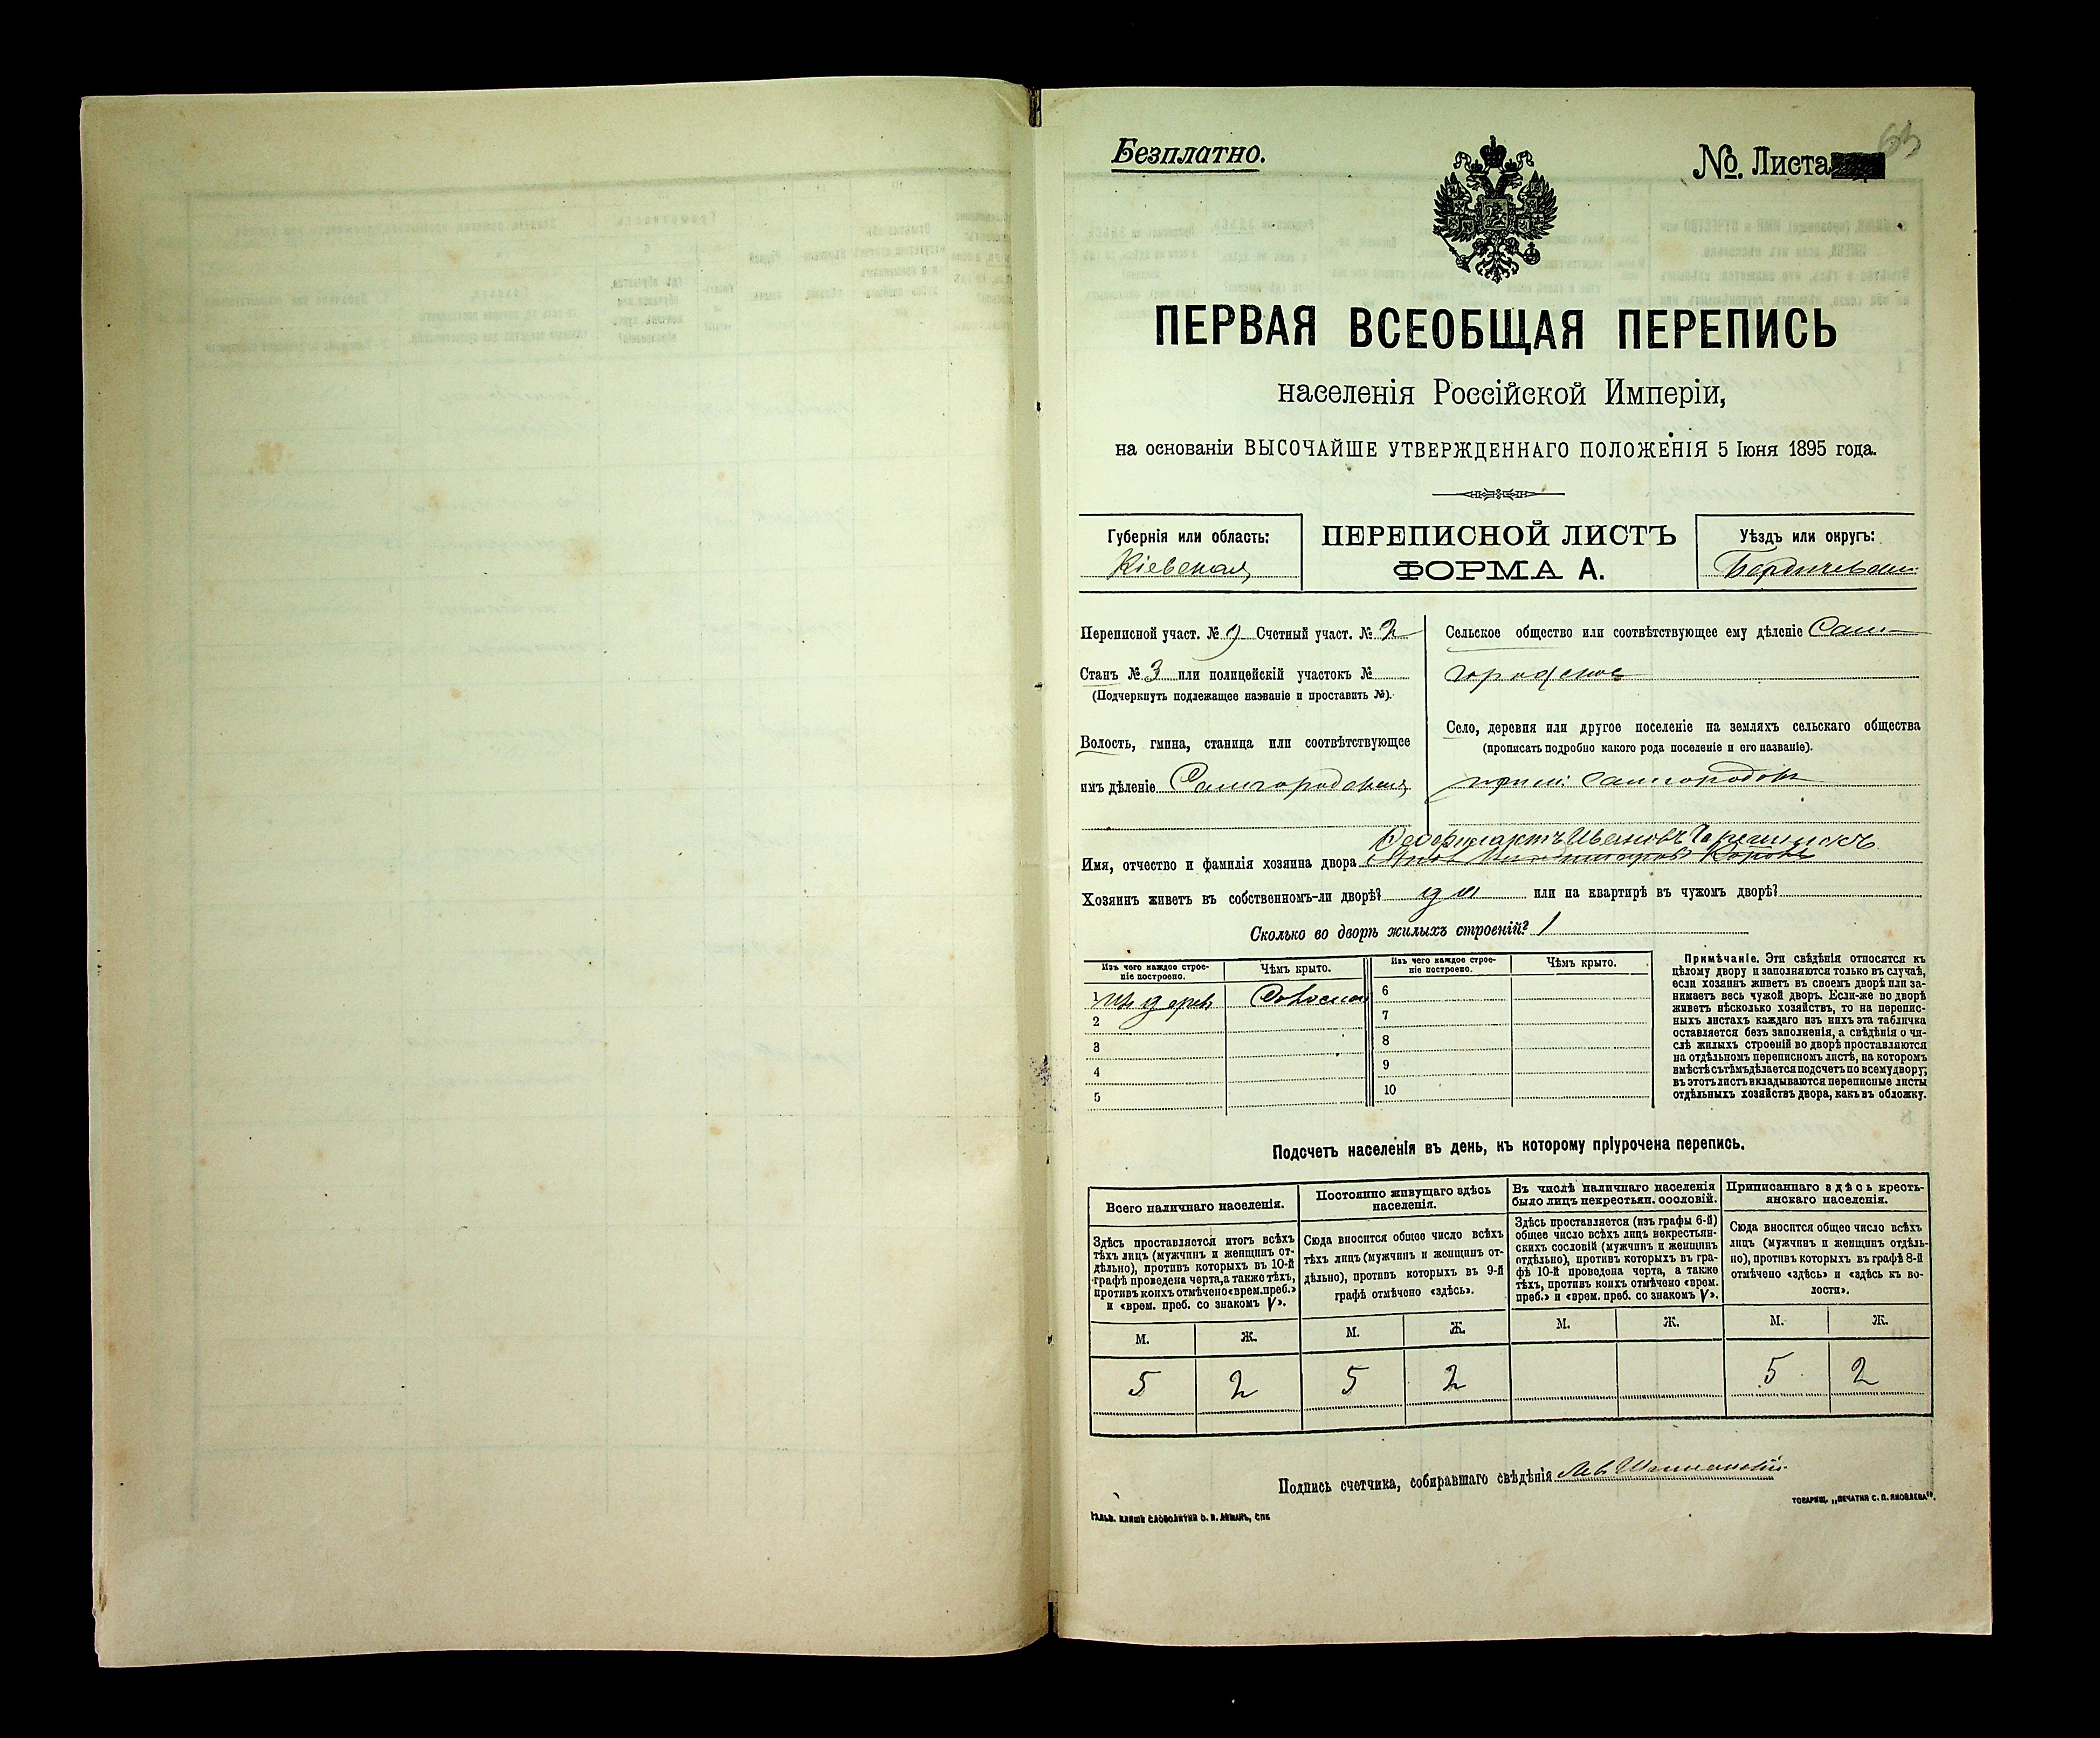 Безплатно.
№. Листа
63
ПЕРВАЯ ВСЕОБЩАЯ ПЕРЕПИСЬ
населенія Россійской Имперіи,
на основаніи ВЫСОЧАЙШЕ УТВЕРЖДЕННАГО ПОЛОЖЕНІЯ 5 Іюня 1895 года.
Губернія или область:
Кіевская
ПЕРЕПИСНОЙ ЛИСТЪ
ФОРМА А.
Уѣздъ или округъ:
Бердичевскій
Переписной участ. № 9 Счетный участ. № 2
Станъ № 3 или полицейскій участокъ №
(Подчеркнуть подлежащее названіе и проставить №).
Волость, гмина, станица или соотвѣтствующее
имъ дѣленіе Самгородская
Сельское общество или соотвѣтствующее ему дѣленіе Сам-
городское
Село, деревня или другое поселеніе на земляхъ сельскаго общества
(прописать подробно какого рода поселеніе и его названіе).
Самгородокъ
Ивановъ
Имя, отчество и фамилія хозяина двора
Хозяинъ живетъ въ собственномъ-ли дворѣ? да или на квартирѣ въ чужомъ дворѣ?
Сколько во дворѣ жилыхъ строеній? 1
Изъ чего каждое строе-
ніе построено.
Чѣмъ крыто.
Изъ чего каждое строе-
ніе построено.
Чѣмъ крыто.
1 Изъ дерев Соломой
2
3
4
5
6
7
8
9
10
Примѣчаніе. Эти свѣдѣнія относятся къ
цѣлому двору и заполняются только въ случаѣ,
если хозяинъ живетъ въ своемъ дворѣ или за-
нимаетъ весь чужой дворъ. Если-же во дворѣ
живетъ нѣсколько хозяйствъ, то на перепис-
ныхъ листахъ каждаго изъ нихъ эта табличка
оставляется безъ заполненія, а свѣдѣнія о чи-
слѣ жилыхъ строеній во дворѣ проставляются
на отдѣльномъ переписномъ листѣ, на которомъ
вмѣстѣ съ тѣмъ дѣлается подсчетъ по всему двору;
въ этотъ листъ вкладываются переписные листы
отдѣльныхъ хозяйствъ двора, какъ въ обложку.
Подсчетъ населенія въ день, къ которому пріурочена перепись.
Всего наличнаго населенія.
Здѣсь проставляется итогъ всѣхъ
тѣхъ лицъ (мужчинъ и женщинъ от-
дѣльно), противъ которыхъ въ 10-й
графѣ проведена черта, а также тѣхъ,
противъ коихъ отмѣчено «врем. преб.»
и «врем. преб. со знакомъ V».
Постоянно живущаго здѣсь
населенія.
Сюда вносится общее число всѣхъ
тѣхъ лицъ (мужчинъ и женщинъ от-
дѣльно), противъ которыхъ въ 9-й
графѣ отмѣчено «здѣсь».
Въ числѣ наличнаго населенія
было лицъ некрестьян. сословій.
Здѣсь проставляется (изъ графы 6-й)
общее число всѣхъ лицъ некрестьян-
скихъ сословій (мужчинъ и женщинъ
отдѣльно), противъ которыхъ въ гра-
фѣ 10-й проведена черта, а также
тѣхъ, противъ коихъ отмѣчено «врем.
преб.» и «врем. преб. со знакомъ V».
Приписаннаго здѣсь кресть-
янскаго населенія.
Сюда вносится общее число всѣхъ
лицъ (мужчинъ и женщинъ отдѣль-
но), противъ которыхъ въ графѣ 8-й
отмѣчено «здѣсь» и «здѣсь къ во-
лости».
М. Ж. М. Ж. М. Ж. М. Ж.
5 2 5 2 5 2
Подпись счетчика, собиравшаго свѣдѣнія
ГАЛЬВ. КЛИШЕ СЛОВОЛИТНИ О. И. ЛЕМАНЪ, СПБ
ТОВАРИЩ. „ПЕЧАТНЯ С. П. ЯКОВЛЕВА“.